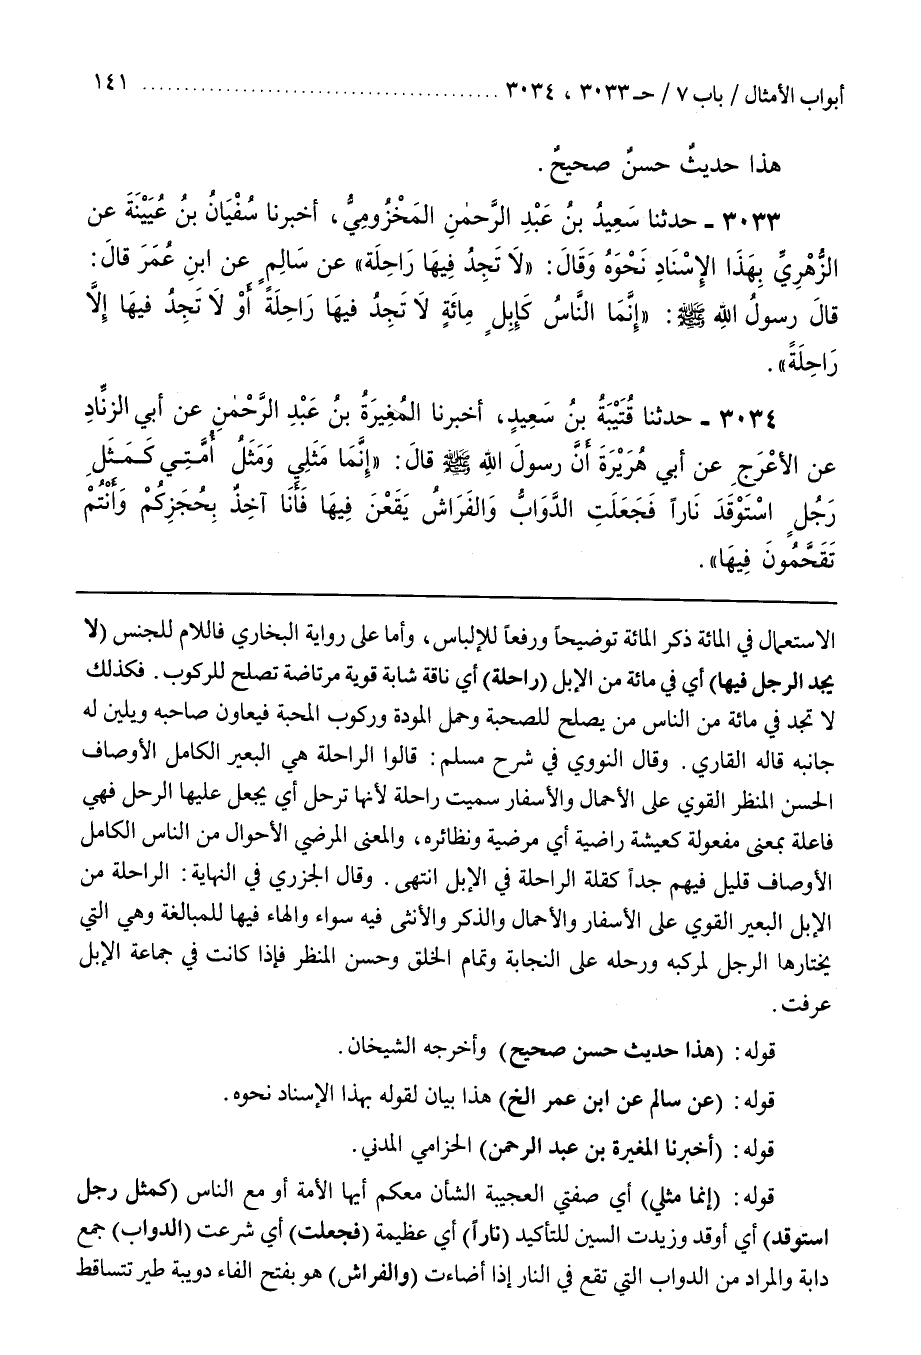 أبواب الأمثال / باب ٧ / حـ ٣٠٣٣ ، ٣٠٣٤ ........................................ ١٤١
هذا حديثٌ حسنٌ صحيحٌ.
٣٠٣٣ ـ حدثنا سَعِيدُ بنُ عَبْدِ الرَّحمٰنِ المَخْزُومِيُّ، أخبرنا سُفْيَانُ بنُ عُيَيْنَةَ عن
الزُّهْرِيِّ بِهَذَا الإِسْنَادِ نَحْوَهُ وَقَالَ: «لَا تَجِدُ فِيهَا رَاحِلَة» عن سَالِمٍ عن ابنِ عُمَرَ قالَ:
قالَ رسولُ الله ﷺ: «إِنَّمَا النَّاسُ كَإِبِلٍ مِائَةٍ لَا تَجِدُ فيهَا رَاحِلَةً أَوْ لَا تَجِدُ فيهَا إِلَّا
رَاحِلَةً».
٣٠٣٤ ـ حدثنا قُتَيْبَةُ بنُ سَعِيدٍ، أخبرنا المُغِيرَةُ بنُ عَبْدِ الرَّحْمٰنِ عن أبي الزنِّادِ
عن الأَعْرَجِ عن أبي هُرَيْرَةَ أَنَّ رسولَ الله ﷺ قالَ: «إِنَّمَا مَثَلِي وَمَثَلُ أُمَّتِي كَمَثَلِ
رَجُلٍ اسْتَوْقَدَ نَاراً فَجَعَلَتِ الدَّوَابُّ وَالفَرَاشُ يَقَعْنَ فِيهَا فَأَنَا آخِذٌ بِحُجَزِكُمْ وَأَنْتُمْ
تَقَحَّمُونَ فِيهَا».
الاستعمال في المائة ذكر المائة توضيحاً ورفعاً للإلباس، وأما على رواية البخاري فاللام للجنس (لا
يجد الرجل فيها) أي في مائة من الإبل (راحلة) أي ناقة شابة قوية مرتاضة تصلح للركوب. فكذلك
لا تجد في مائة من الناس من يصلح للصحبة وحمل المودة وركوب المحبة فيعاون صاحبه ويلين له
جانبه قاله القاري. وقال النووي في شرح مسلم: قالوا الراحلة هي البعير الكامل الأوصاف
الحسن المنظر القوي على الأحمال والأسفار سميت راحلة لأنها ترحل أي يجعل عليها الرحل فهي
فاعلة بمعنى مفعولة كعيشة راضية أي مرضية ونظائره، والمعنى المرضي الأحوال من الناس الكامل
الأوصاف قليل فيهم جداً كقلة الراحلة في الإبل انتهى. وقال الجزري في النهاية: الراحلة من
الإبل البعير القوي على الأسفار والأحمال والذكر والأنثى فيه سواء والهاء فيها للمبالغة وهي التي
يختارها الرجل لمركبه ورحله على النجابة وتمام الخلق وحسن المنظر فإذا كانت في جماعة الإبل
عرفت.
قوله: (هذا حديث حسن صحيح) وأخرجه الشيخان.
قوله: (عن سالم عن ابن عمر الخ) هذا بيان لقوله بهذا الإسناد نحوه.
قوله: (أخبرنا المغيرة بن عبد الرحمن) الحزامي المدني.
قوله: (إنما مثلي) أي صفتي العجيبة الشأن معكم أيها الأمة أو مع الناس (كمثل رجل
استوقد) أي أوقد وزيدت السين للتأكيد (ناراً) أي عظيمة (فجعلت) أي شرعت (الدواب) جمع
دابة والمراد من الدواب التي تقع في النار إذا أضاءت (والفراش) هو بفتح الفاء دويبة طير تتساقط